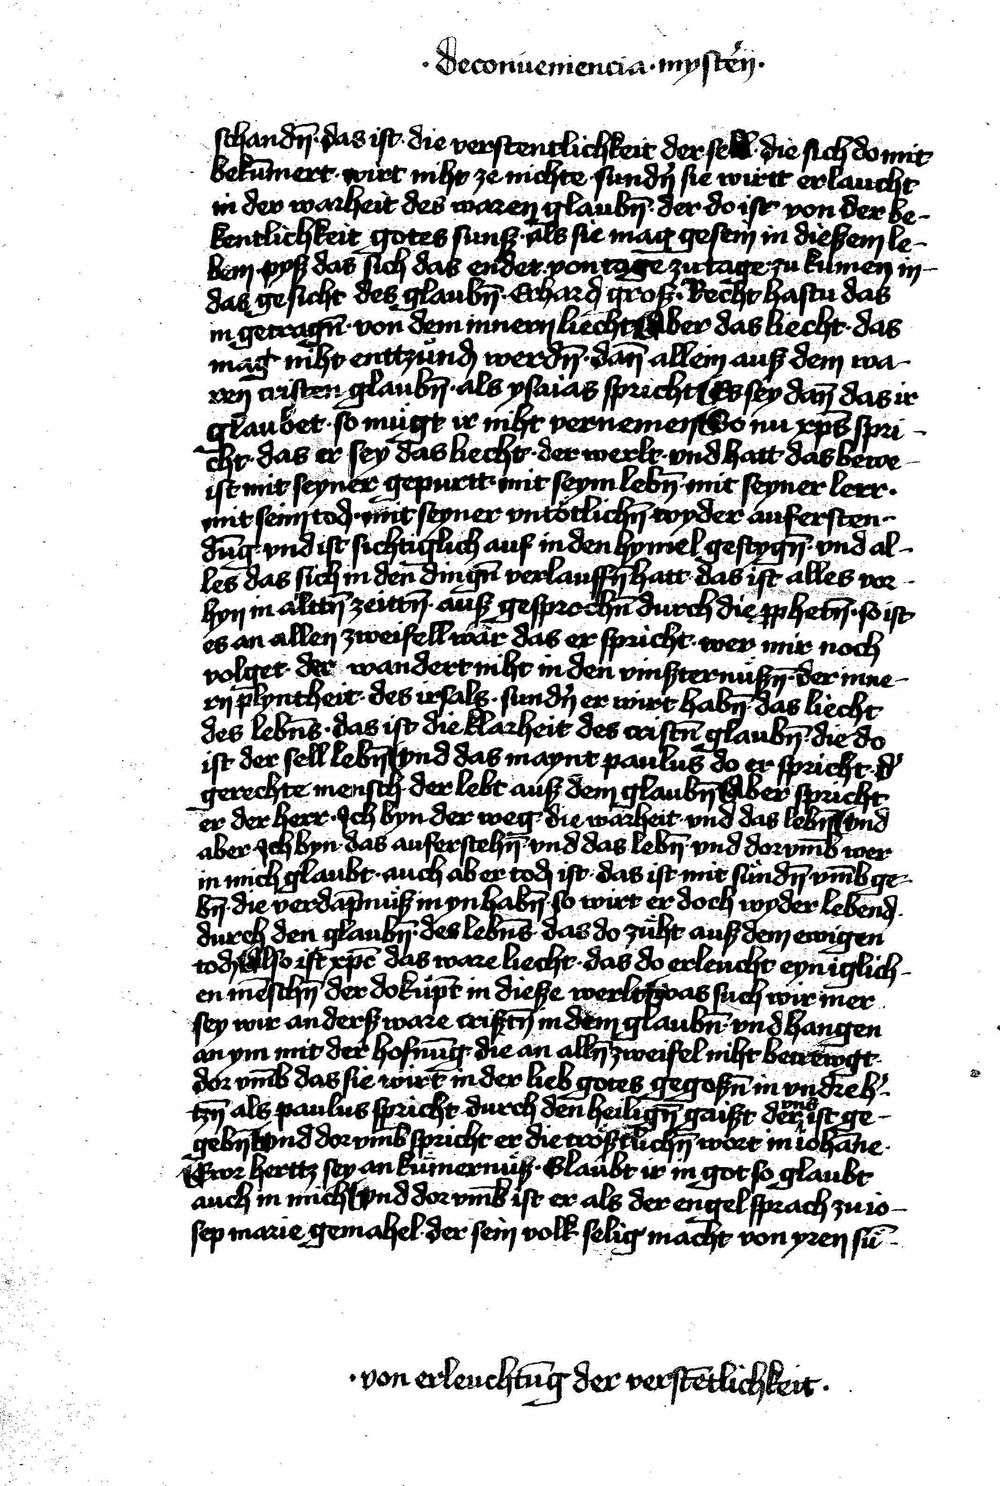 ·de conueniencia·mysterij·
schandn̄·das ist·die verstentlichkeit der sell·die sich do mit
bekūmert·wirt niht ze nichte·sundn̄ sie wirtt erlaucht
in der warheit des waren glaubn̄·der do ist von der be-
kentlichkeit gotes sunß·als sie mag gesein in dießem le-
ben·pyß das sich das endet·von tage zu tage·zu kumen in-
das gesicht des glaubn̄·Erhard groß·Recht hastu das
in getragn̄·von dem innern liecht Aber das liecht·das
mag niht enttzündt werdn̄·dan̄ allein auß dem wa-
ren cristen glaubn̄·als ysaias spricht Es sey dan̄ das ir
glaubet·so mügt ir niht vernemen So nu xp̄s spri-
cht·das er sey das liecht·der werlt·vnd hatt das bewe-
ist mit seyner gepurtt·mit seym lebn̄·mit seyner lerr·
mit seim tod·mit seyner vntötlichn̄ wyder aufersten-
dūg·vnd ist sichtiglich auf in den hymel gestygn̄·vnd al-
les das sich in den dingn̄ verlauffn̄ hatt·das ist alles vor-
hyn in alttn̄ zeittn̄·auß gesprochn̄ durch die ꝓphetn̄·so ist
es an allen zweifell war das er spricht·wer mir noch
volget·der wandert niht in den vinsternüßn̄·der inne-
rn plyntheit·des irsals·sundn̄ er wirt habn̄·das liecht
des lebn̄s·das ist die klarheit des cristn̄ glaubn̄·die do
ist der sell lebn̄ vnd das maynt paulus do er spricht·d'
gerechte mensch·der lebt auß dem glaubn̄ Aber spricht
er der herr·Ich byn·der weg·die warheit·vnd das lebn̄ vnd
aber·Ich byn·das auferstehn̄·vnd das lebn̄·vnd dorvm̄b wer
in mich glaubt·auch aber tod ist·das ist mit sündn̄ vm̄bge-
bn̄·die verdāpnüß in yn habn̄·so wirt er doch wyder lebend
durch den glaubn̄·des lebn̄s·das do züht auß dem ewigen
tod Also ist xp̄c das ware liecht·das do erleucht eyn iglich-
en mēschn̄ der do kūpt in dieße werlt was such wir mer
sey wir anderß ware cristn̄ in dem glaubn̄·vnd hangen
an ym mit der hofnūg·die an alln̄ zweifel niht betrewgt·
dor vm̄b das sie wirt in der lieb gotes gegoßn̄ in vndre h'-
tzn̄ als paulus spricht·durch den heilign̄ gaißt der vns ist ge-
gebn̄ vnd dor vm̄b spricht er die trößtlichn̄ wort in iohāne·
Ewr herttz sey an kümernüß·Glaubt ir in got so glaubt
auch in mich vnd dor vm̄b ist er als der engel sprach zu io-
sep marie gemahel·der sein volk selig macht von yren sū-
·von erleuchtūg der verstētlichkeit·